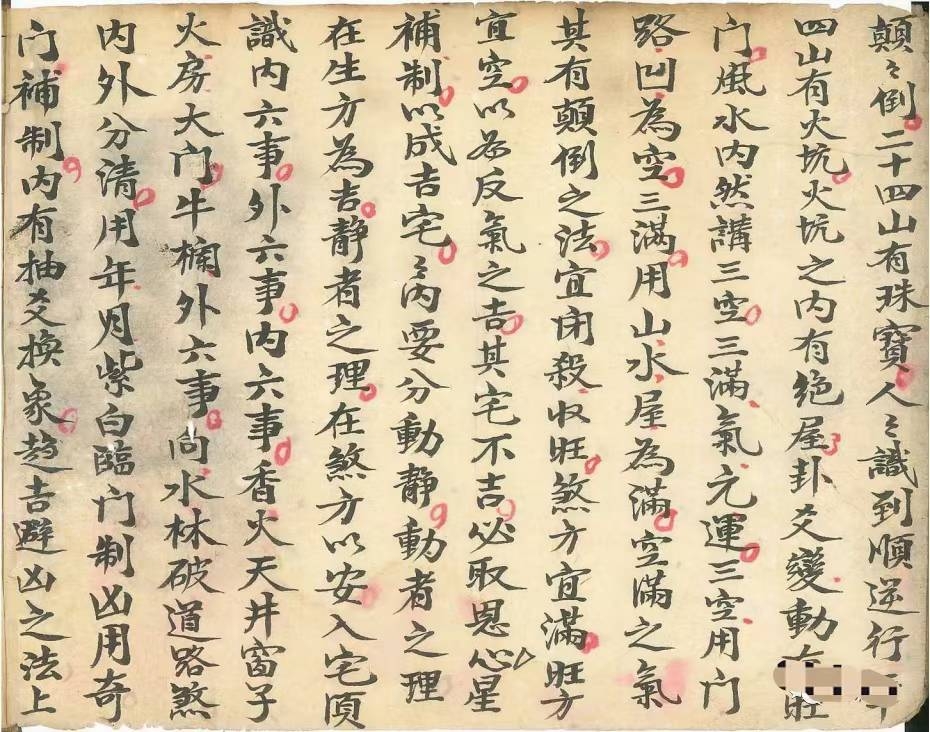 顛〻倒二十四山有珠寶人〻識到順逆行二十
四山有火坑火坑之内有绝屋卦爻變動有旺
门風水内然講三空三滿氣元運三空用门
路凹為空三滿用山水屋為滿空滿之氣
其有顛倒之法宜闭殺収旺煞方宜滿旺方
宜空以為反氣之吉其宅不吉必取恩星
補制以成吉宅〻内要分動静動者之理
在生方為吉静者之理在煞方以安入宅湏
識内六事外六事内六事香火天井窗子
火房大门牛欄外六事向水林破道路煞
内外分清用年月紫白臨门制凶用奇
门補制内有抽爻换象趋吉避凶之法上